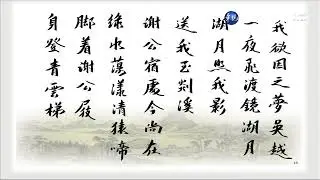 我欲因之夢吳越
一夜飛渡鏡湖月
湖月照我影
送我至剡溪
謝公宿處今尚在
綠水蕩漾清猿啼
脚着謝公屐
身登青雲梯